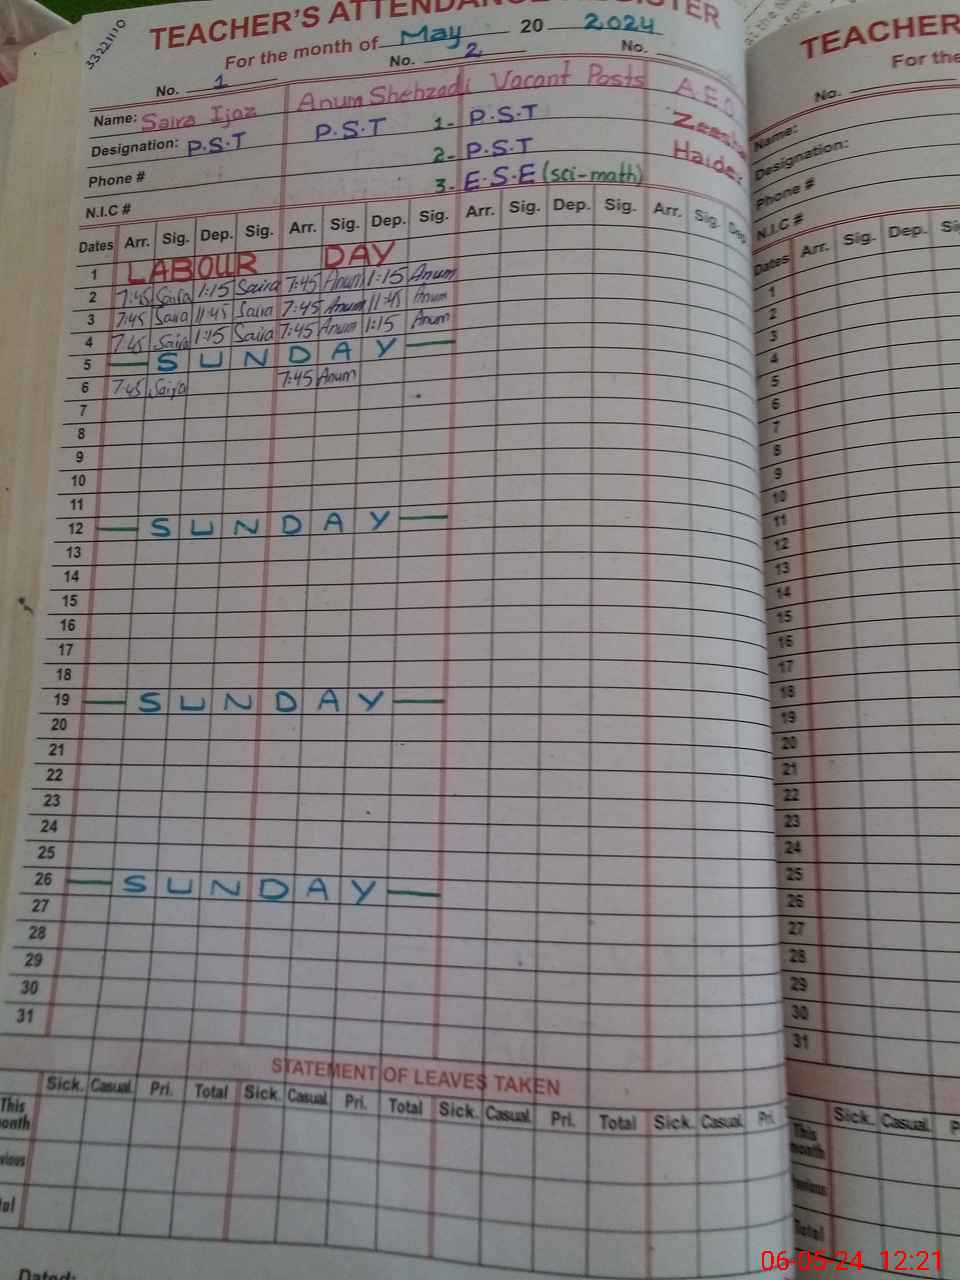 33221110
TEACHER'S ATTENDANCE REGISTER
For the month of May 20 2024
No. 1 No. 2 No.
Name: Saira Ijaz Anum Shehzadi Vacant Posts A.E.O
Designation: P.S.T P.S.T 1- P.S.T
Phone # 2- P.S.T Haider
N.I.C # 3- E.S.E (sci-math)
Dates Arr. Sig. Dep. Sig. Arr. Sig. Dep. Sig. Arr. Sig. Dep. Sig. Arr. Sig. Dep.
1 LABOUR DAY
2 7:45 Saira 1:15 Saira 7:45 Anum 1:15 Anum
3 7:45 Saira 11:45 Saira 7:45 Anum 11:45 Anum
4 7:45 Saira 1:15 Saira 7:45 Anum 1:15 Anum
5 — SUNDAY —
6 7:45 Saira 7:45 Anum
7
8
9
10
11
12 — SUNDAY —
13
14
15
16
17
18
19 — SUNDAY —
20
21
22
23
24
25
26 — SUNDAY —
27
28
29
30
31
STATEMENT OF LEAVES TAKEN
Sick. Casual. Pri. Total Sick. Casual. Pri. Total Sick. Casual. Pri. Total Sick. Casual. Pri.
This
Dated:
TEACHER
For the
No.
Name:
Designation:
Phone #
N.I.C #
Dates Arr. Sig. Dep.
1
2
3
4
5
6
7
8
9
10
11
12
13
14
15
16
17
18
19
20
21
22
23
24
25
26
27
28
29
30
31
Sick. Casual.
This
month
Total
06-05-24 12:21